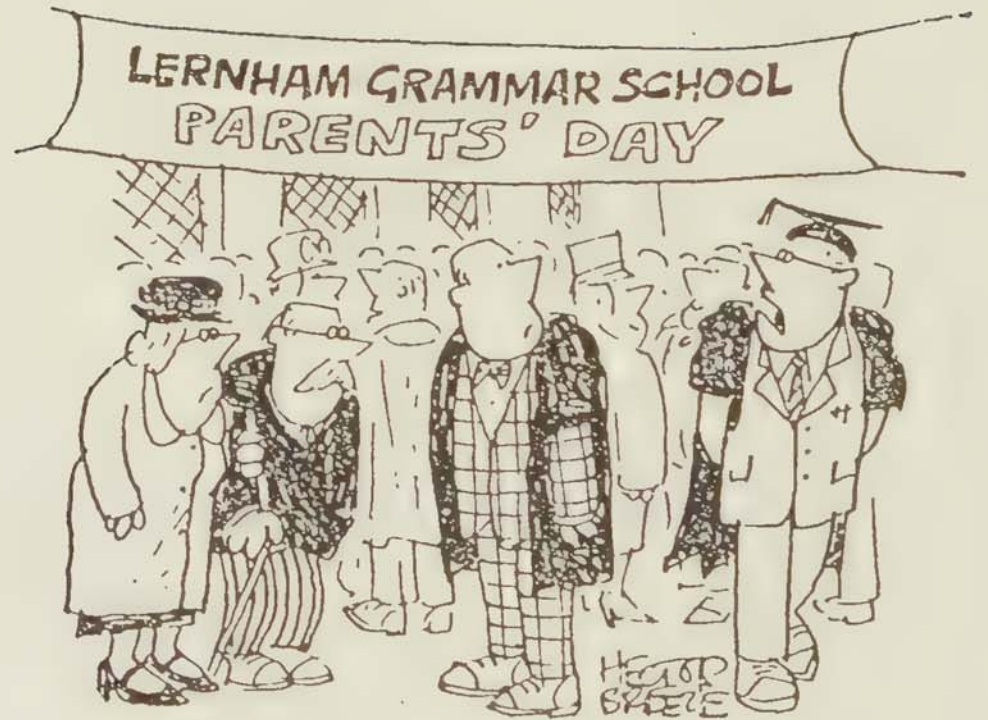 LERNHAM GRAMMAR SCHOOL
PARENTS' DAY
HECTOR
BREEZE